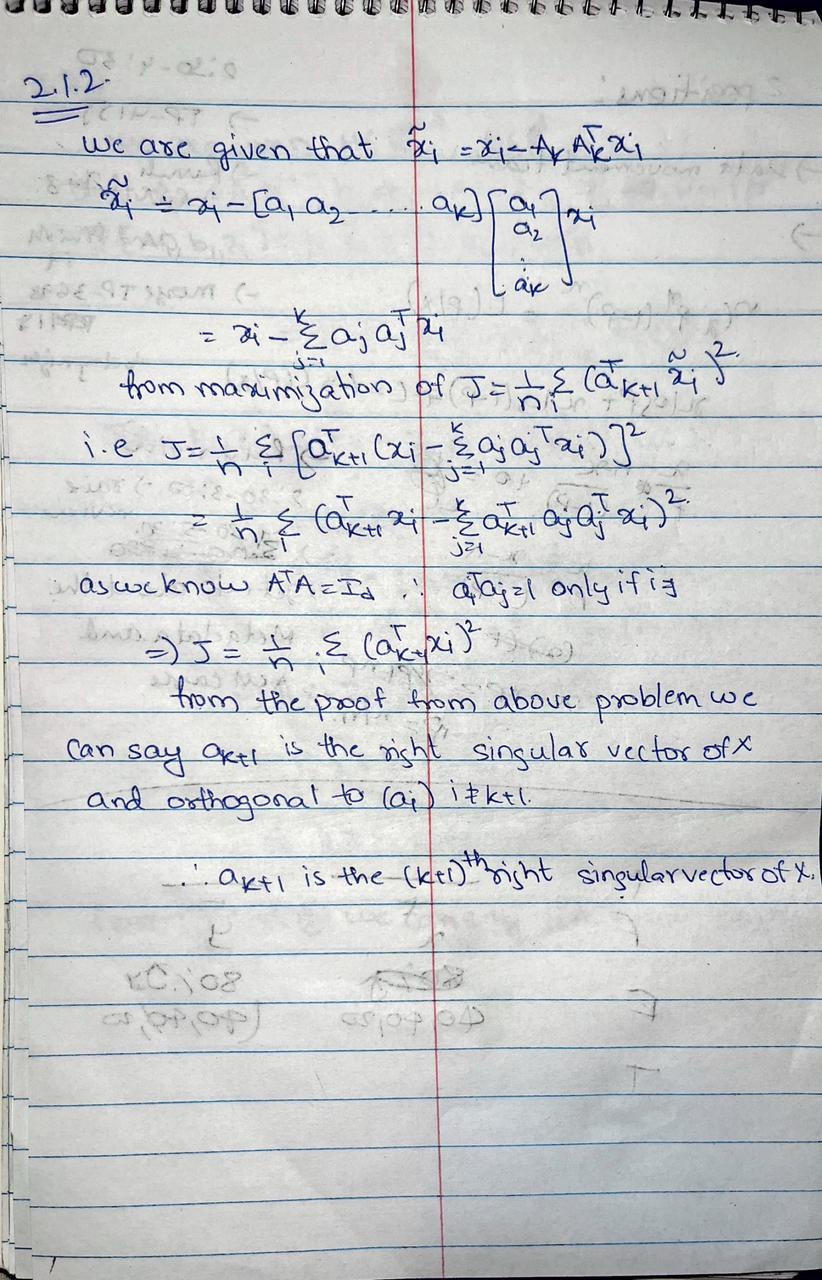 2.1.2.
we are given that x̃i = xi - Ak Akᵀ xi
x̃i = xi - [a1 a2 ..... ak] [a1 a2 ⋮ ak] xi
= xi - Σ_{j=1}^{k} aj ajᵀ xi
from maximization of J = 1/n Σ_i (aᵀk+1 x̃i)².
i.e J = 1/n Σ_i [aᵀk+1 (xi - Σ_{j=1}^{k} aj ajᵀ xi)]²
= 1/n Σ_i (aᵀk+1 xi - Σ_{j=1}^{k} aᵀk+1 aj ajᵀ xi)².
as we know AᵀA = Id ∴ aiᵀaj = 1 only if i=j
=> J = 1/n Σ_i (aᵀk+1 xi)²
from the proof from above problem we
can say ak+1 is the right singular vector of X
and orthogonal to (ai) i≠k+1.
∴ ak+1 is the (k+1)th right singular vector of X.